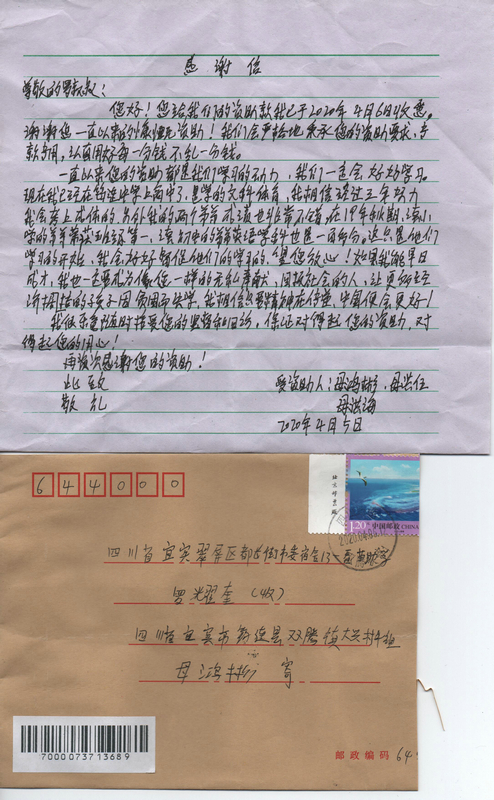 感谢信
尊敬的罗叔叔:
您好!您给我们的资助款我已于2020年4月6日收悉。
谢谢您一直以来的慷慨无私资助!我们会严格地按您的资助要求,专
款专用,认真用好每一分钱不乱一分钱。
一直以来您的资助都是我们学习的动力,我们一定会好好学习。
现在我已经在 中学上高中了,是学的文科体育,我相信经过三年努力
我会考上大学的。另外我的两个弟弟成绩也非常不错,在19年秋期,读小
学的弟弟荣获班级第一,读初中的弟弟英语学科也是一百多分。这只是他们
学习的开始,我会好好督促他们学习的,望您放心!如果我能早日
成才,我也一定要成为像您一样的无私奉献,回报社会的人,让更多的经
济困难的孩子不因贫困而失学。我相信只要精神在传承,中国便会更好!
我很乐意随时接受您的监督和回访,保证对得起您的资助,对
得起您的用心!
再次感谢您的资助!
此致
敬礼
受资助人:母鸿彬、母洪任
母洪海
2020年4月5日
644000
北京邮票厂
1.20 中国邮政 CHINA
四川省宜宾翠屏区都长街市委宿舍13
罗光耀奎(收)
四川省宜宾市 县双腾镇大 村4组
母鸿彬 寄
7000073713689
邮政编码 64